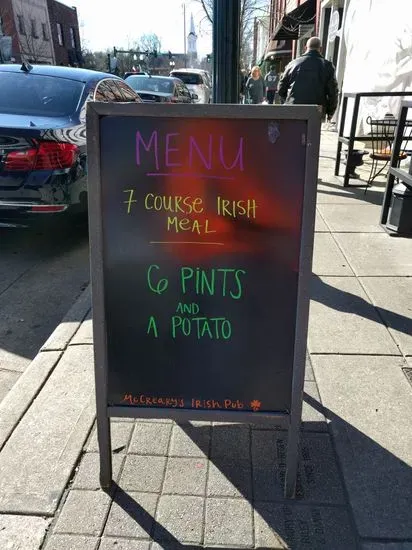 MENU
7 COURSE IRISH
MEAL
6 PINTS
AND
A POTATO
McCreary's Irish Pub